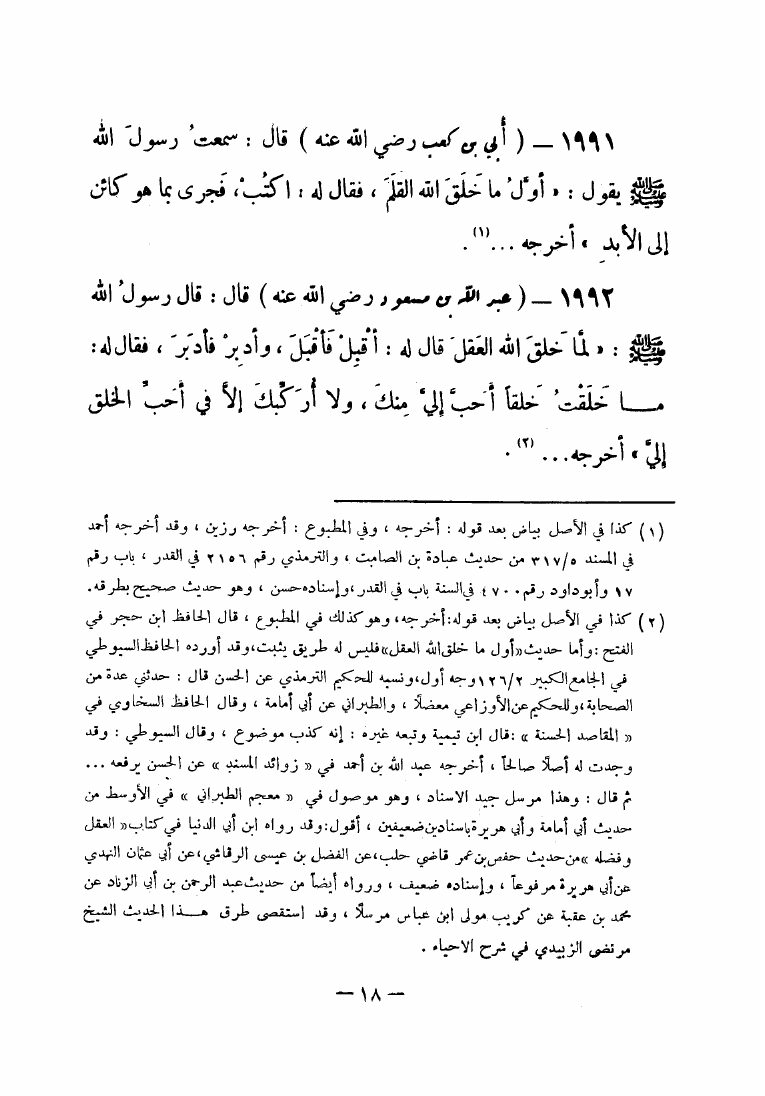 ١٩٩١ ــ ( أُبي بن كعب رضي الله عنه ) قال : سمعتُ رسولَ الله
ﷺ يقول : « أوَّلُ ما خَلَقَ الله القَلَمَ ، فقال له : اكتُبْ، فَجرى بما هو كائن
إلى الأبدِ » أخرجه ...(١).
١٩٩٢ ــ ( عبد الله بن مسعود رضي الله عنه ) قال : قال رسولُ الله
ﷺ : « لمَّا خَلقَ الله العَقلَ قال له : أقْبِلْ فَأقْبَلَ ، وأدبِرْ فأدبَرَ ، فقال له:
مــا خَلَقْتُ خَلقاً أحَبَّ إليَّ مِنكَ ، ولا أُرَكِّبُكَ إلاَّ في أحَبِّ الخلق
إليَّ » أخرجه... (٢) .
(١) كذا في الأصل بياض بعد قوله : أخرجه ، وفي المطبوع : أخرجه رزين ، وقد أخرجه أحمد
في المسند ٣١٧/٥ من حديث عبادة بن الصامت ، والترمذي رقم ٢١٥٦ في القدر ، باب رقم
١٧ وأبوداود رقم ٤٧٠٠ في السنة باب في القدر،وإسناده حسن ، وهو حديث صحيح بطرقه.
(٢) كذا في الأصل بياض بعد قوله:أخرجه، وهو كذلك في المطبوع ، قال الحافظ ابن حجر في
الفتح :وأما حديث«أول ما خلق الله العقل»فليس له طريق يثبت،وقد أورده الحافظ السيوطي
في الجامع الكبير ١٢٦/٢وجه أول،ونسبه للحكيم الترمذي عن الحسن قال : حدثني عدة من
الصحابة،وللحكيم عن الأوزاعي معضلًا ، والطبراني عن أبي أمامة ، وقال الحافظ السخاوي في
« المقاصد الحسنة » :قال ابن تيمية وتبعه غيره : إنه كذب موضوع ، وقال السيوطي : وقد
وجدت له أصلًا صالحاً ، أخرجه عبد الله بن أحمد في « زوائد المسند » عن الحسن يرفعه ...
ثم قال : وهذا مرسل جيد الاسناد ، وهو موصول في « معجم الطبراني » في الأوسط من
حديث أبي أمامة وأبي هريرة بإسنادين ضعيفين ، أقول:وقد رواه ابن أبي الدنيا في كتاب« العقل
وفضله »من حديث حفص بن عمر قاضي حلب،عن الفضل بن عيسى الرقاشي،عن أبي عثمان النهدي
عن أبي هريرة مرفوعاً ، وإسناده ضعيف ، ورواه أيضاً من حديث عبد الرحمن بن أبي الزناد عن
محمد بن عقبة عن كريب مولى ابن عباس مرسلًا ، وقد استقصى طرق هــذا الحديث الشيخ
مرتضى الزبيدي في شرح الاحياء .
— ١٨ —